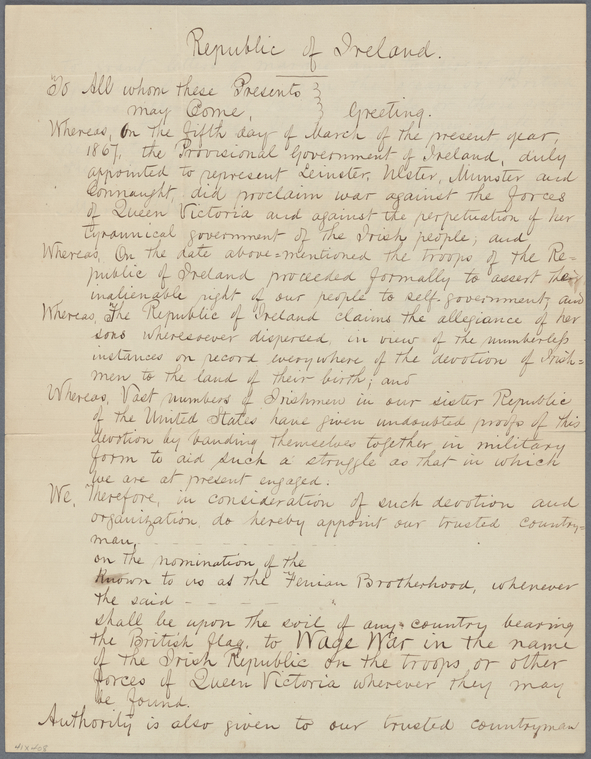 Republic of Ireland.
To All whom these Presents
may Come, Greeting.
Whereas, On the fifth day of March of the present year,
1867, the Provisional Government of Ireland, duly
appointed to represent Leinster, Ulster, Munster and
Connaught, did proclaim war against the forces
of Queen Victoria and against the perpetuation of her
tyrannical government of the Irish people; and
Whereas, On the date above=mentioned the troops of the Re-
public of Ireland proceeded formally to assert their
inalienable right of our people to self-government; and
Whereas, The Republic of Ireland claims the allegiance of her
sons wheresoever dispersed, in view of the numberless
instances on record everywhere of the devotion of Irish=
men to the land of their birth; and
Whereas, Vast numbers of Irishmen in our sister Republic
of the United States have given undoubted proofs of this
devotion by banding themselves together in military
form to aid such a struggle as that in which
we are at present engaged:
We, Therefore, in consideration of such devotion and
organization, do hereby appoint our trusted country=
man, - - - - -
on the nomination of the
known to us as the Fenian Brotherhood, whenever
the said - - - - -
shall be upon the soil of any country bearing
the British flag, to Wage War in the name
of the Irish Republic on the troops or other
forces of Queen Victoria wherever they may
be found.
Authority is also given to our trusted countryman